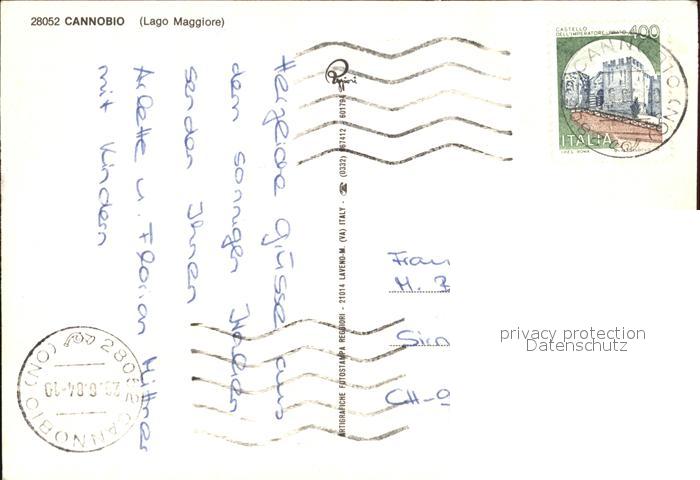 28052 CANNOBIO (Lago Maggiore)
Herzliche Grüsse aus
dem sonnigen Italien
senden Ihnen
Arlette u. Florian Hüttner
mit Kindern
ARTIGRAFICHE FOTOSTAMPA REGGIORI - 21014 LAVENO-M. (VA) ITALY - ☎ (0332) 667412 / 601794
CASTELLO
DELL'IMPERATORE - PRATO 400
ITALIA
CANNOBIO (NO)
Frau
M. Z
CH-
privacy protection
Datenschutz
28052 CANNOBIO (NO)